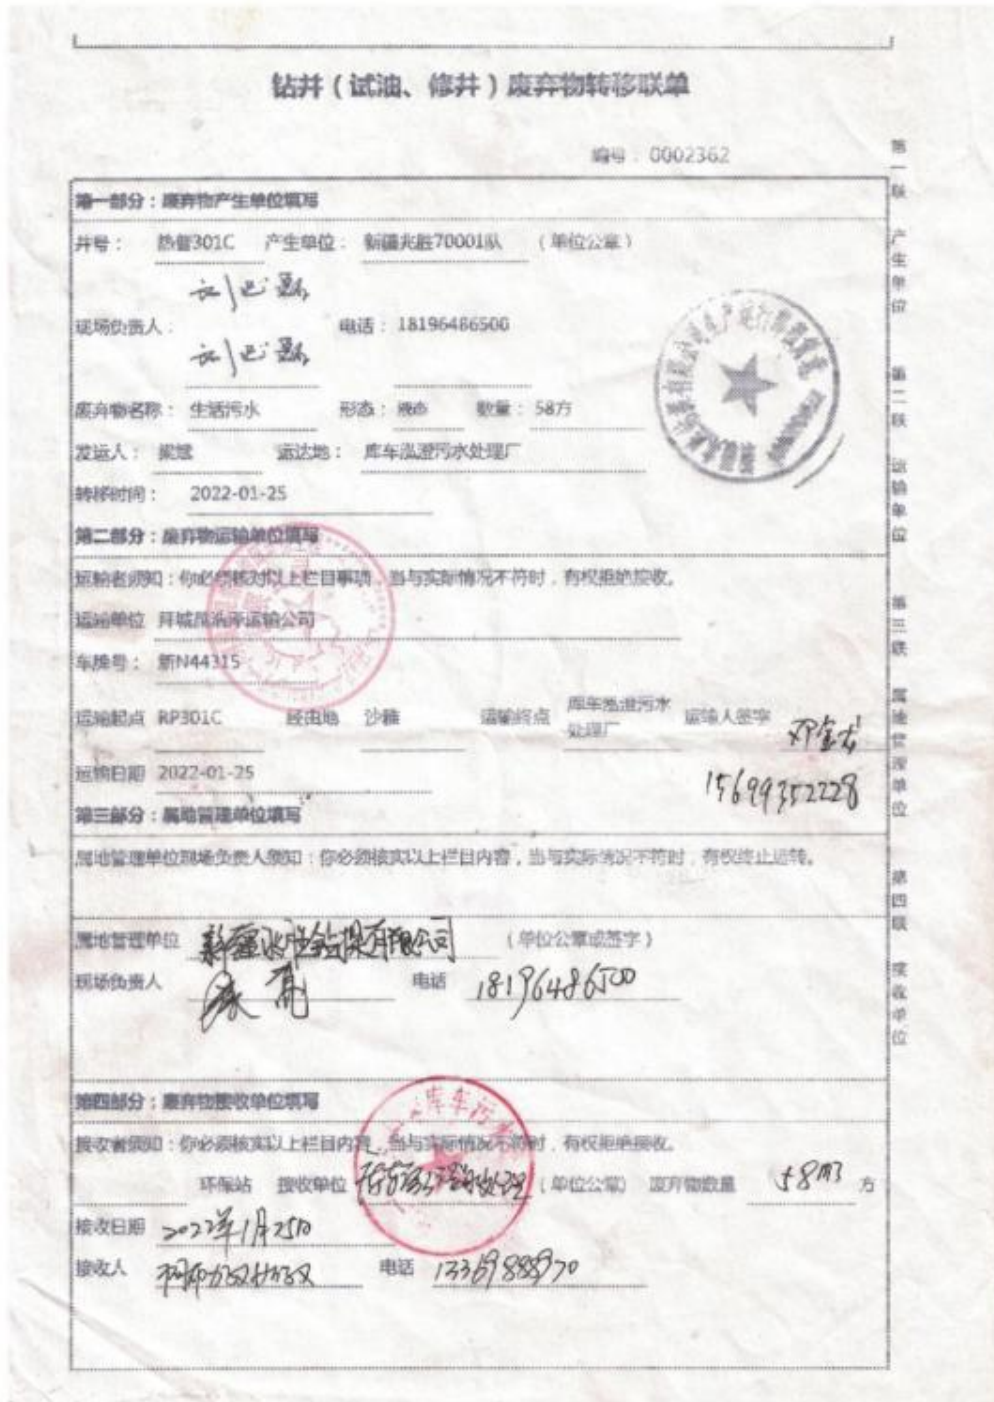 钻井（试油、修井）废弃物转移联单
编号：0002362
第一部分：废弃物产生单位填写
井号： 热普301C 产生单位： 新疆兆胜70001队 （单位公章）
现场负责人： 电话：18196486500
废弃物名称： 生活污水 形态：液态 数量：58方
发运人： 梁斌 运达地： 库车泓澄污水处理厂
转移时间： 2022-01-25
第二部分：废弃物运输单位填写
运输者须知：你必须核对以上栏目事项，当与实际情况不符时，有权拒绝接收。
运输单位 拜城 运输公司
车牌号： 新N44315
运输起点 RP301C 经由地 沙雅 运输终点 库车泓澄污水处理厂 运输人签字 邓金龙
运输日期 2022-01-25
15699352228
第三部分：属地管理单位填写
属地管理单位现场负责人须知：你必须核实以上栏目内容，当与实际情况不符时，有权终止运转。
属地管理单位 新疆兆胜钻探有限公司 （单位公章或签字）
现场负责人 电话 18196486500
第四部分：废弃物接收单位填写
接收者须知：你必须核实以上栏目内容，当与实际情况不符时，有权拒绝接收。
环保站 接收单位 （单位公章） 废弃物数量 58m3 方
接收日期 2022年1月25日
接收人 电话 13369888970
第一联 产生单位 第二联 运输单位 第三联 属地管理单位 第四联 接收单位
库车污